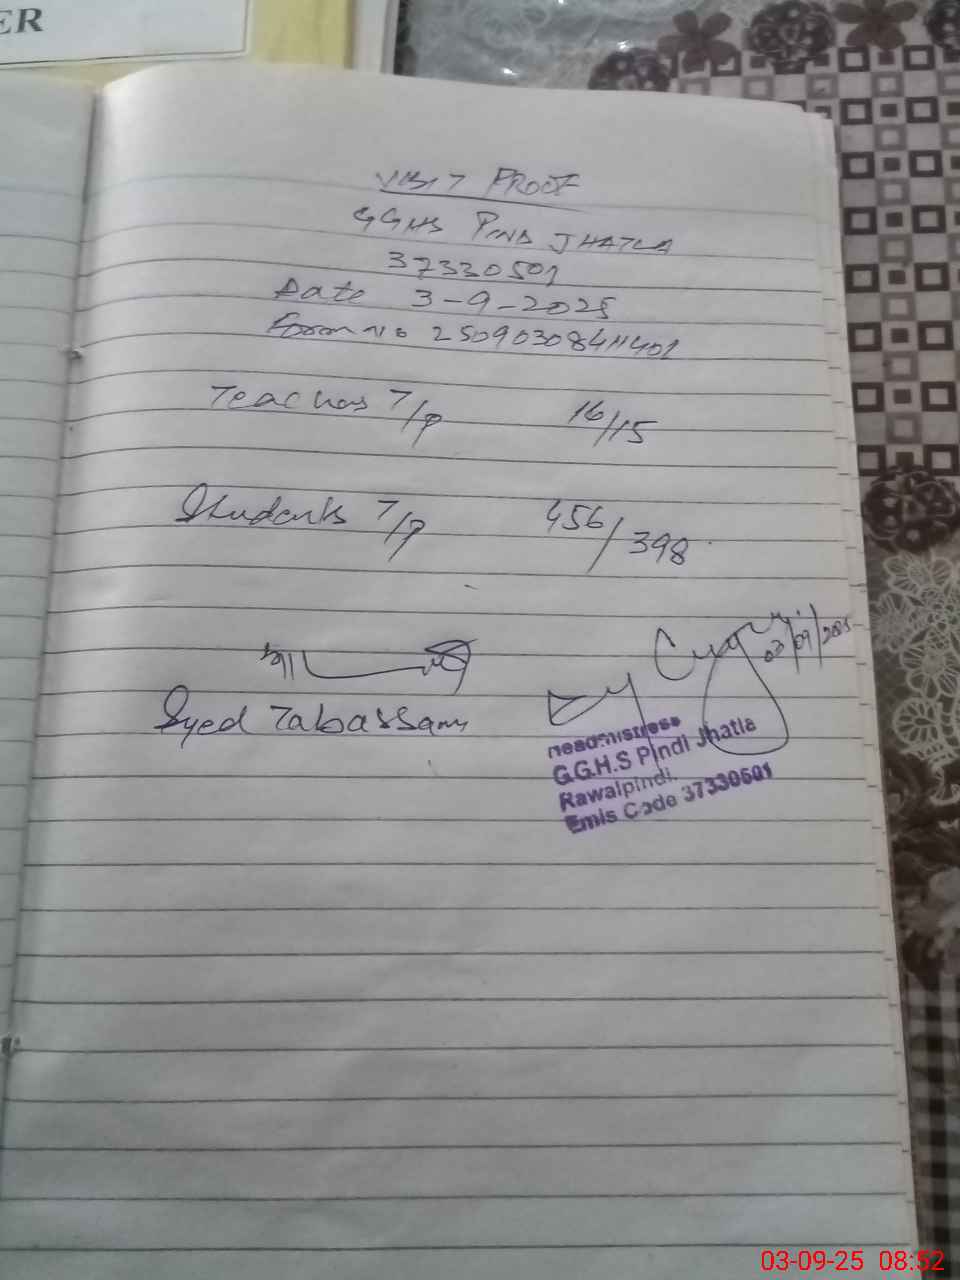 ER
VISIT PROOF
GGHS PIND JHATLA
37330501
Date 3-9-2025
Form No 25090308411401
Teachers T/P 16/15
Students T/P 456/398
Syed Tabassam
03/09/2025
Headmistress
G.G.H.S Pindi Jhatla
Rawalpindi.
Emis Code 37330501
03-09-25 08:52